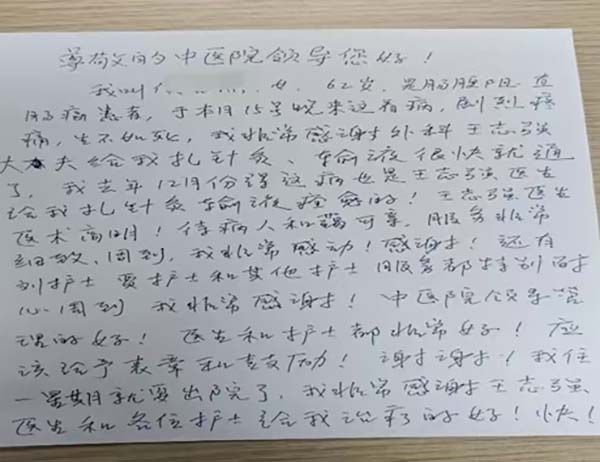 尊敬的中医院领导您好!
我叫 女，62岁，是肠梗阻直
肠病患者，于本月15号晚来这看病，剧烈疼
痛，生不如死，我非常感谢外科王志强
大夫给我扎针灸、输液很快就通
了，我去年12月份得这病也是王志强医生
给我扎针灸输液痊愈的！王志强医生
医术高明！待病人和蔼可亲，服务非常
细致、周到，我非常感动！感谢！还有
刘护士 夏护士和其他护士服务都特别耐
心周到 我非常感谢！中医院领导管
理的好！医生和护士都非常好！应
该给予表章和鼓励！谢谢！我住
一星期就要出院了，我非常感谢王志强
医生和各位护士给我治病的好！快！